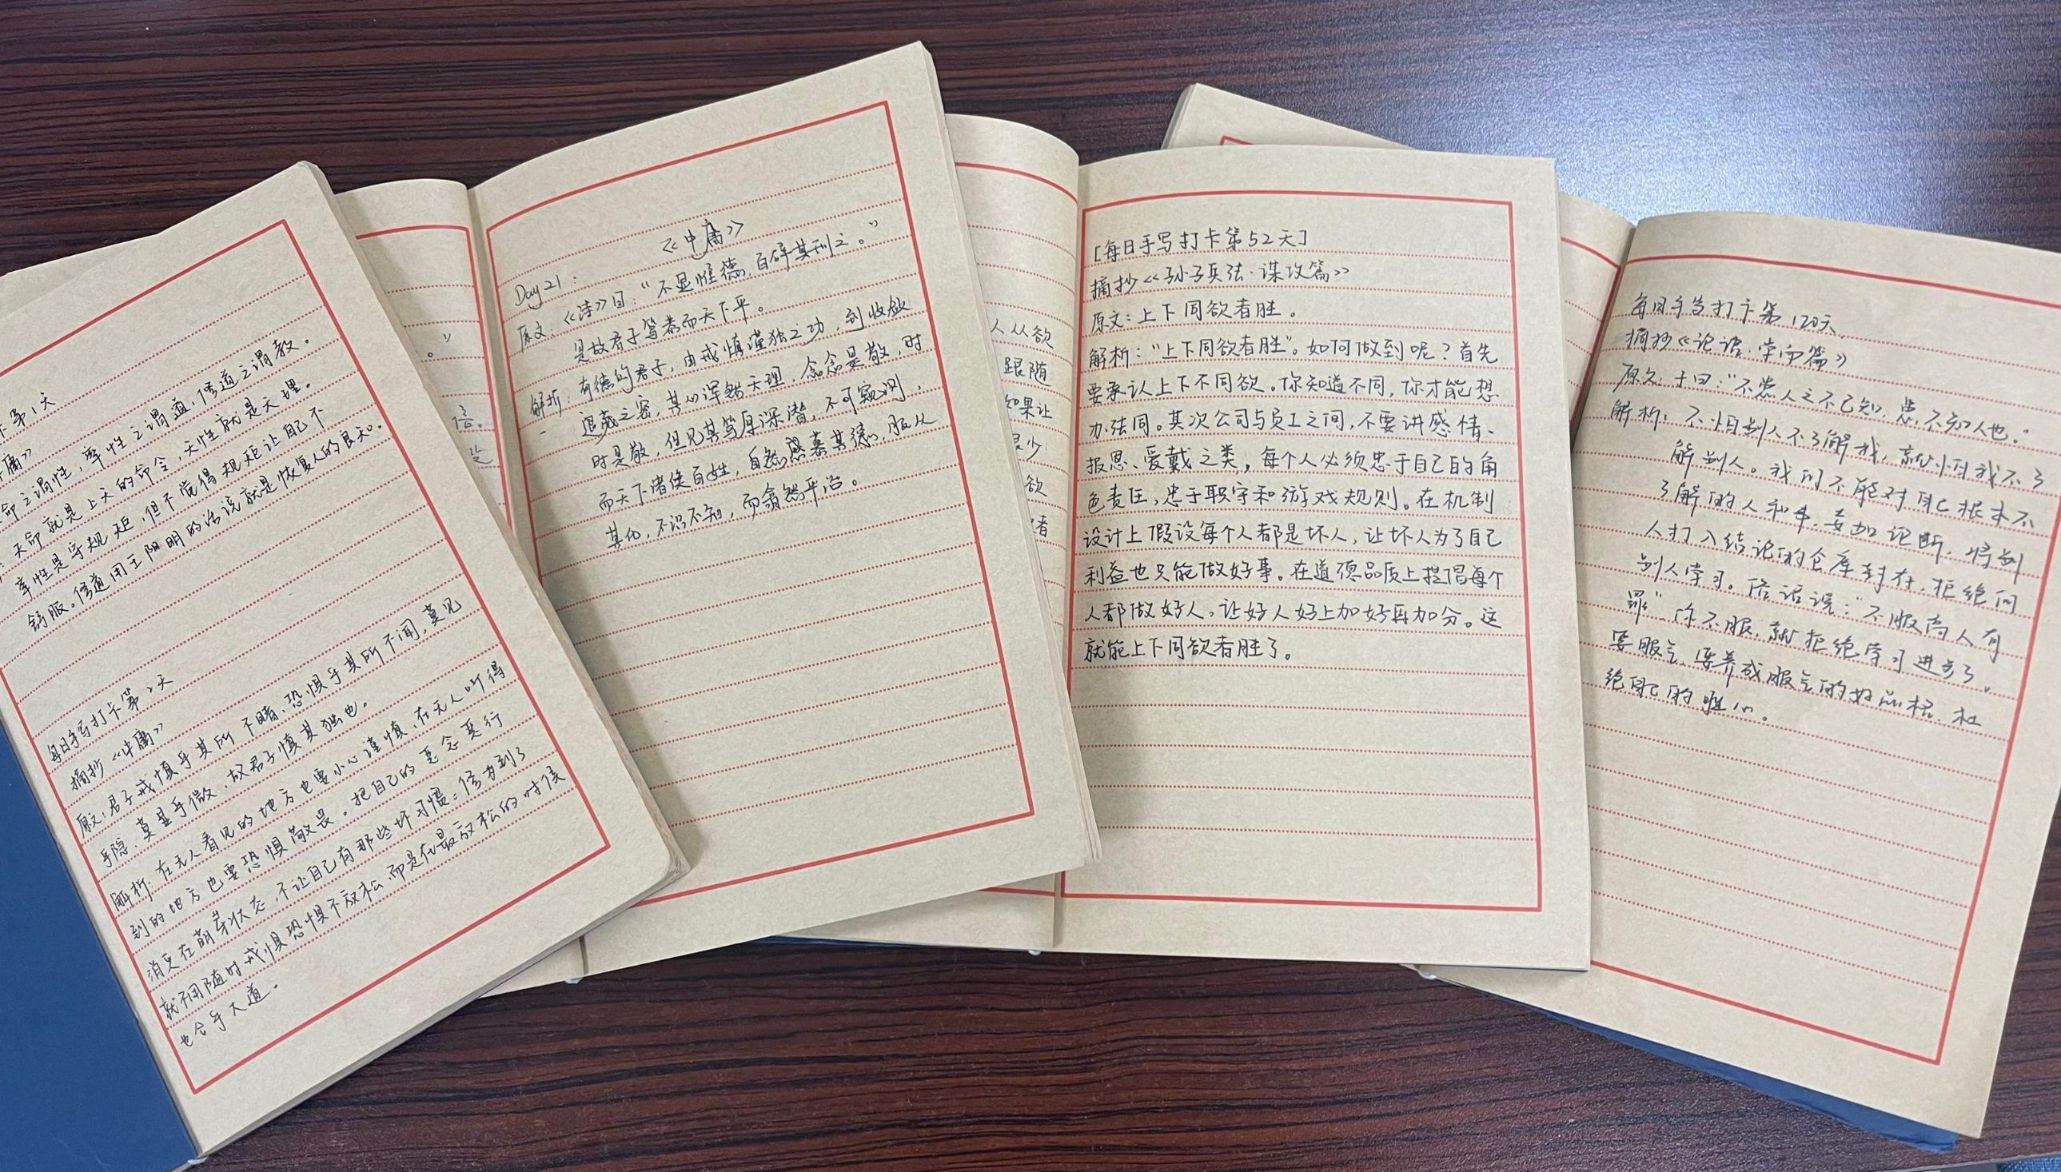 卡第1天
庸》
命之谓性，率性之谓道，修道之谓教。
天命就是上天的命令，天性就是天理。
率性是守规矩，但不觉得规矩让自己不
舒服。修道用王阳明的话说就是恢复人的良知。
每日手写打卡第2天
摘抄《中庸》
原文：君子戒慎乎其所不睹，恐惧乎其所不闻，莫见
乎隐，莫显乎微，故君子慎其独也。
解析：在无人看见的地方也要小心谨慎，在无人听得
到的地方也要恐惧敬畏。把自己的恶念恶行
消灭在萌芽状态，不让自己有那些坏习惯。修为到了
就不用随时戒惧恐惧不放松，而是在最放松的时候
也合乎大道。
。”
信。
Day21：《中庸》
原文：《诗》曰：“不显惟德，百辟其刑之。”
是故君子笃恭而天下平。
解析：有德的君子，由戒慎谨独之功，到收敛
退藏之密，其心浑然天理，念念是敬，时
时是敬，但见其笃厚深潜，不可窥测，
而天下诸侯百姓，自然感慕其德，服从
其化，不识不知，而翕然平治。
人从欲
跟随
如果让
很少
欲
者
[每日手写打卡第52天]
摘抄《孙子兵法·谋攻篇》
原文：上下同欲者胜。
解析：“上下同欲者胜”。如何做到呢？首先
要承认上下不同欲。你知道不同，你才能想
办法同。其次公司与员工之间，不要讲感情、
报恩、爱戴之类，每个人必须忠于自己的角
色责任，忠于职守和游戏规则。在机制
设计上假设每个人都是坏人，让坏人为了自己
利益也只能做好事。在道德品质上提倡每个
人都做好人，让好人好上加好再加分。这
就能上下同欲者胜了。
每日手写打卡第120天
摘抄《论语·学而篇》
原文：子曰：“不患人之不己知，患不知人也。”
解析：不怕别人不了解我，就怕我不了
解别人。我们不能对自己根本不
了解的人和事，妄加论断，将别
人打入结论的仓库封存，拒绝向
别人学习。俗话说：“不服高人有
罪”你不服，就拒绝学习进步了。
要服气，培养成服气的好品格，杜
绝自己的雄心。